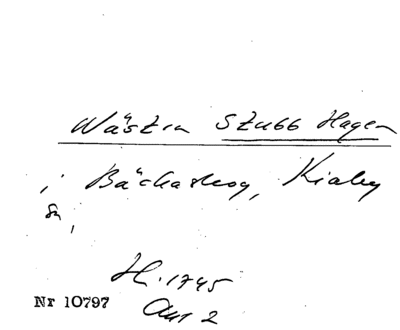 Wästra Stubb Hagen
i Bäckaskog, Kiaby
sn,
H. 1745
Nr 10797
Akt 2